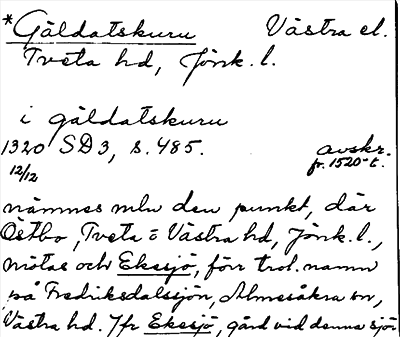 *Gäldatskuru Västra el.
Tveta hd, Jönk. l.
i gäldatskuru
1320 SD3, s. 485. avskr.
12/12 fr. 1520-t.
nämnes mlu den punkt, där
Östbo, Tveta o Västra hd, Jönk. l.,
mötas och Ekesjö, förr trol. namn
på Fredriksdalssjön, Almesåkra sn,
Västra hd. Jfr Ekesjö, gård vid denna sjö